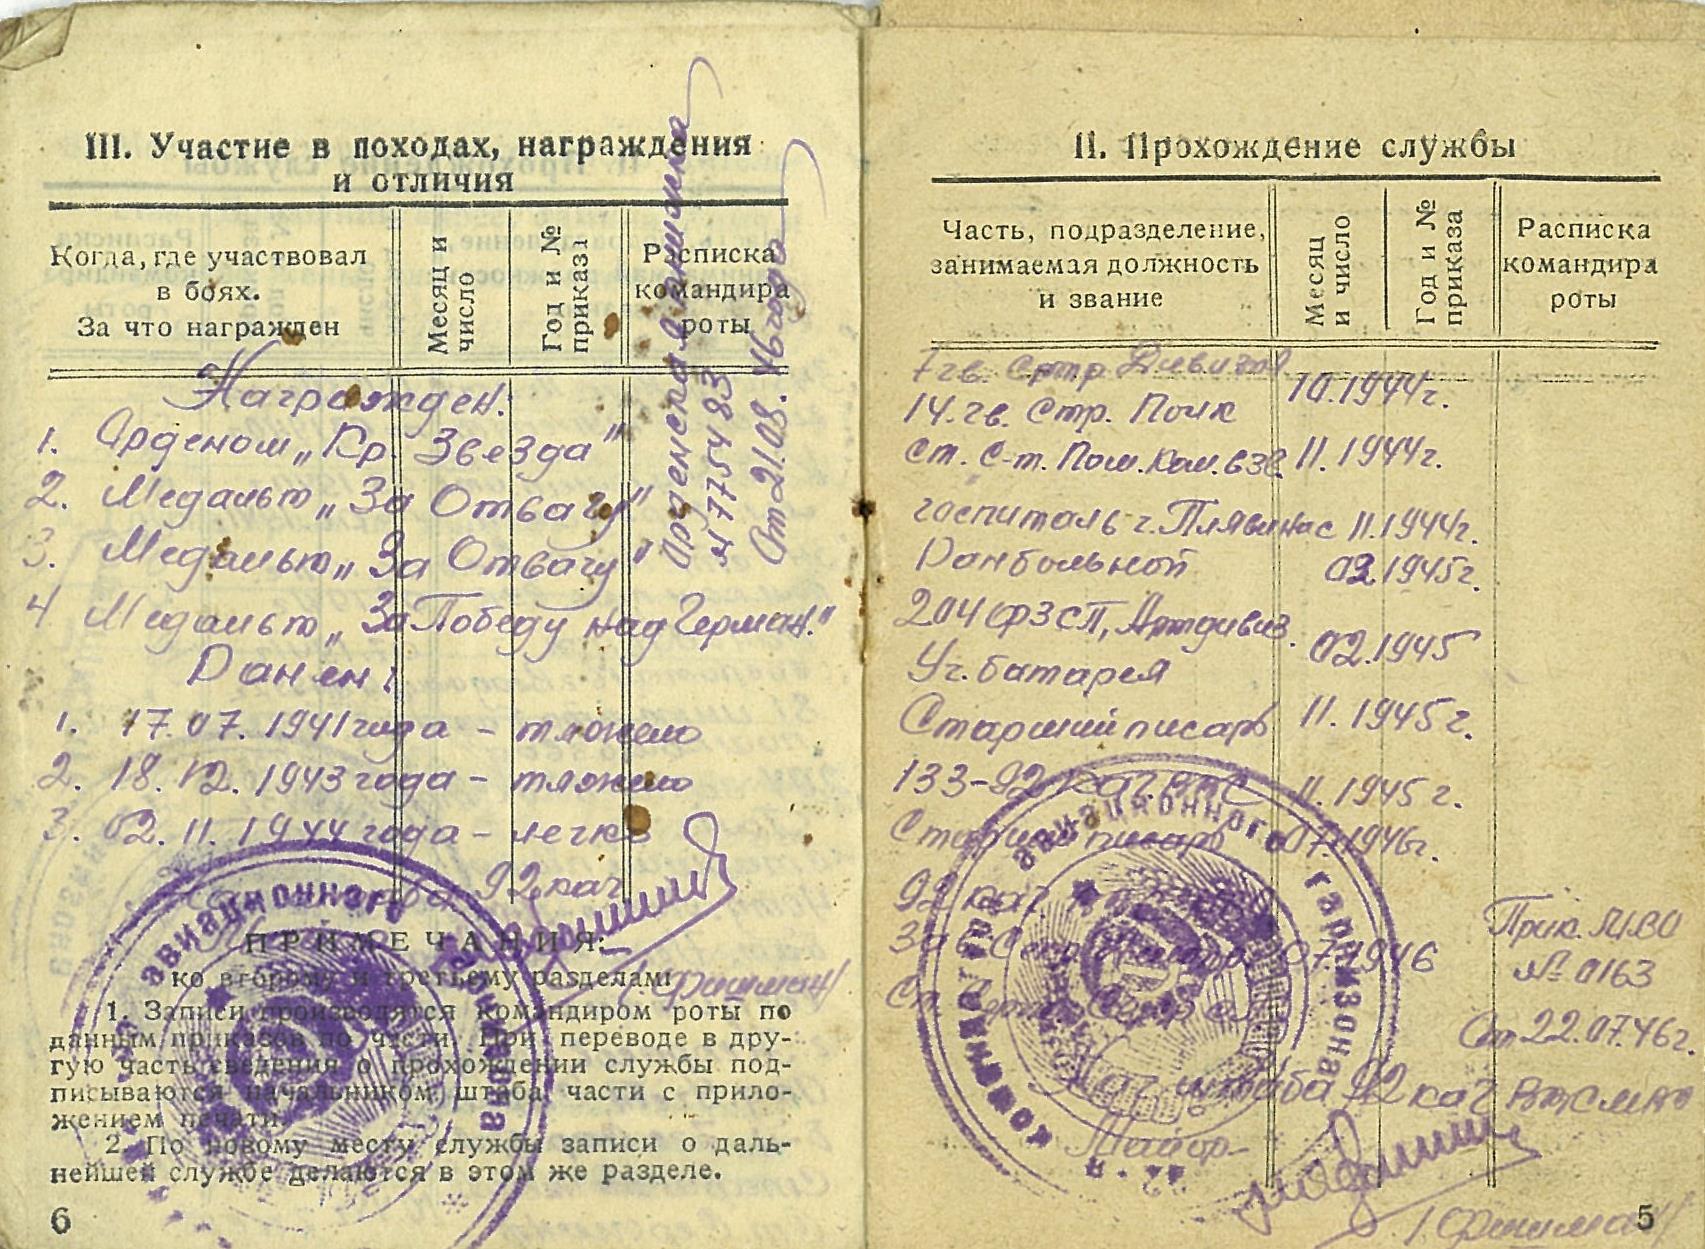 III. Участие в походах, награждения
и отличия
Когда, где участвовал
в боях.
За что награжден
Месяц и
число
Год и №
приказа
Расписка
командира
роты
Награжден:
1. Орденом „Кр. Звезда"
2. Медалью „За Отвагу"
3. Медалью „За Отвагу"
4 Медалью „За Победу над Герман."
Орденская книжка
№ 7754 83
От 21.08. 46 года
Ранен:
1. 17.07. 1941 года - тяжело
2. 18.12. 1943 года - тяжело
3. 02.11. 1944 года - легко
92 кач
(Фишман)
ПРИМЕЧАНИЯ:
ко второму и третьему разделам
1. Записи производятся командиром роты по
данным приказов по части. При переводе в дру-
гую часть сведения о прохождении службы под-
писываются начальником штаба части с прило-
жением печати.
2. По новому месту службы записи о даль-
нейшей службе делаются в этом же разделе.
6
авиационного
II. Прохождение службы
Часть, подразделение,
занимаемая должность
и звание
Месяц
и число
Год и №
приказа
Расписка
командира
роты
7 гв. Стр. Дивизия 10.1944г.
14. гв. Стр. Полк
ст. с-т. Пом. Ком. взв. 11.1944г.
госпиталь г. Плявинас 11.1944г.
Ранбольной 02.1945г.
204 ФЗСП, Артдивиз. 02.1945
Уч. батарея
Старший писарь 11.1945г.
133-92 кач 11.1945г.
Старший писарь 07.1946г.
92 кач
07.1946
Прик.
№ 0163
От 22.07.46г.
Нач. штаба 92 кач
Майор-
(Фишман)
авиационного гарнизона
5